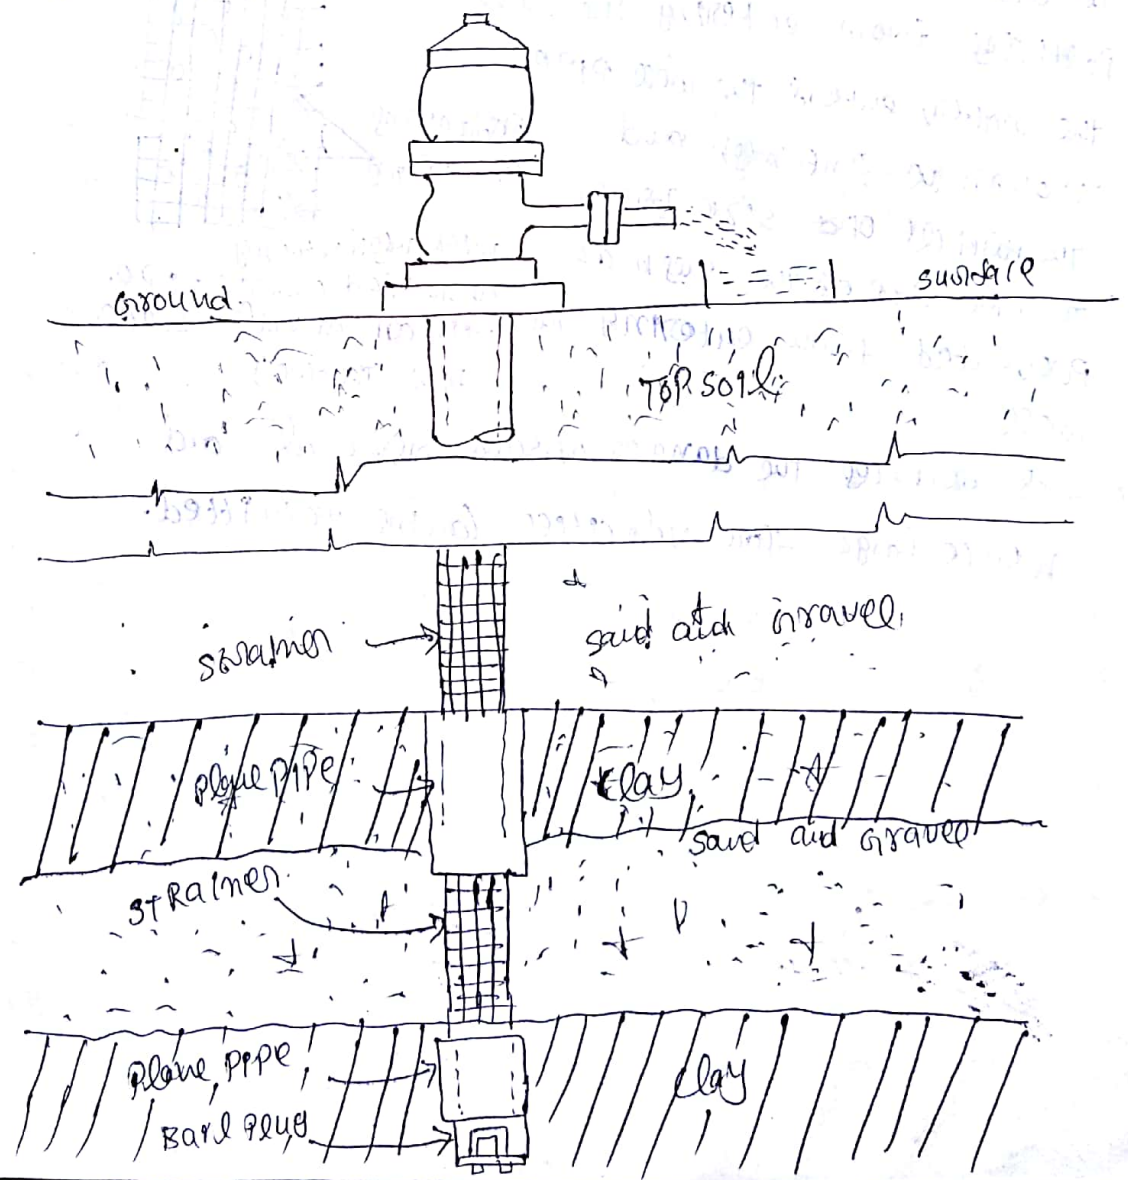 Ground
surface
TOP SOIL
strainer
sand and Gravel.
Plane PIPE
Clay
sand and Gravel
STRAINER
Plane PIPE
Clay
Bail Plug